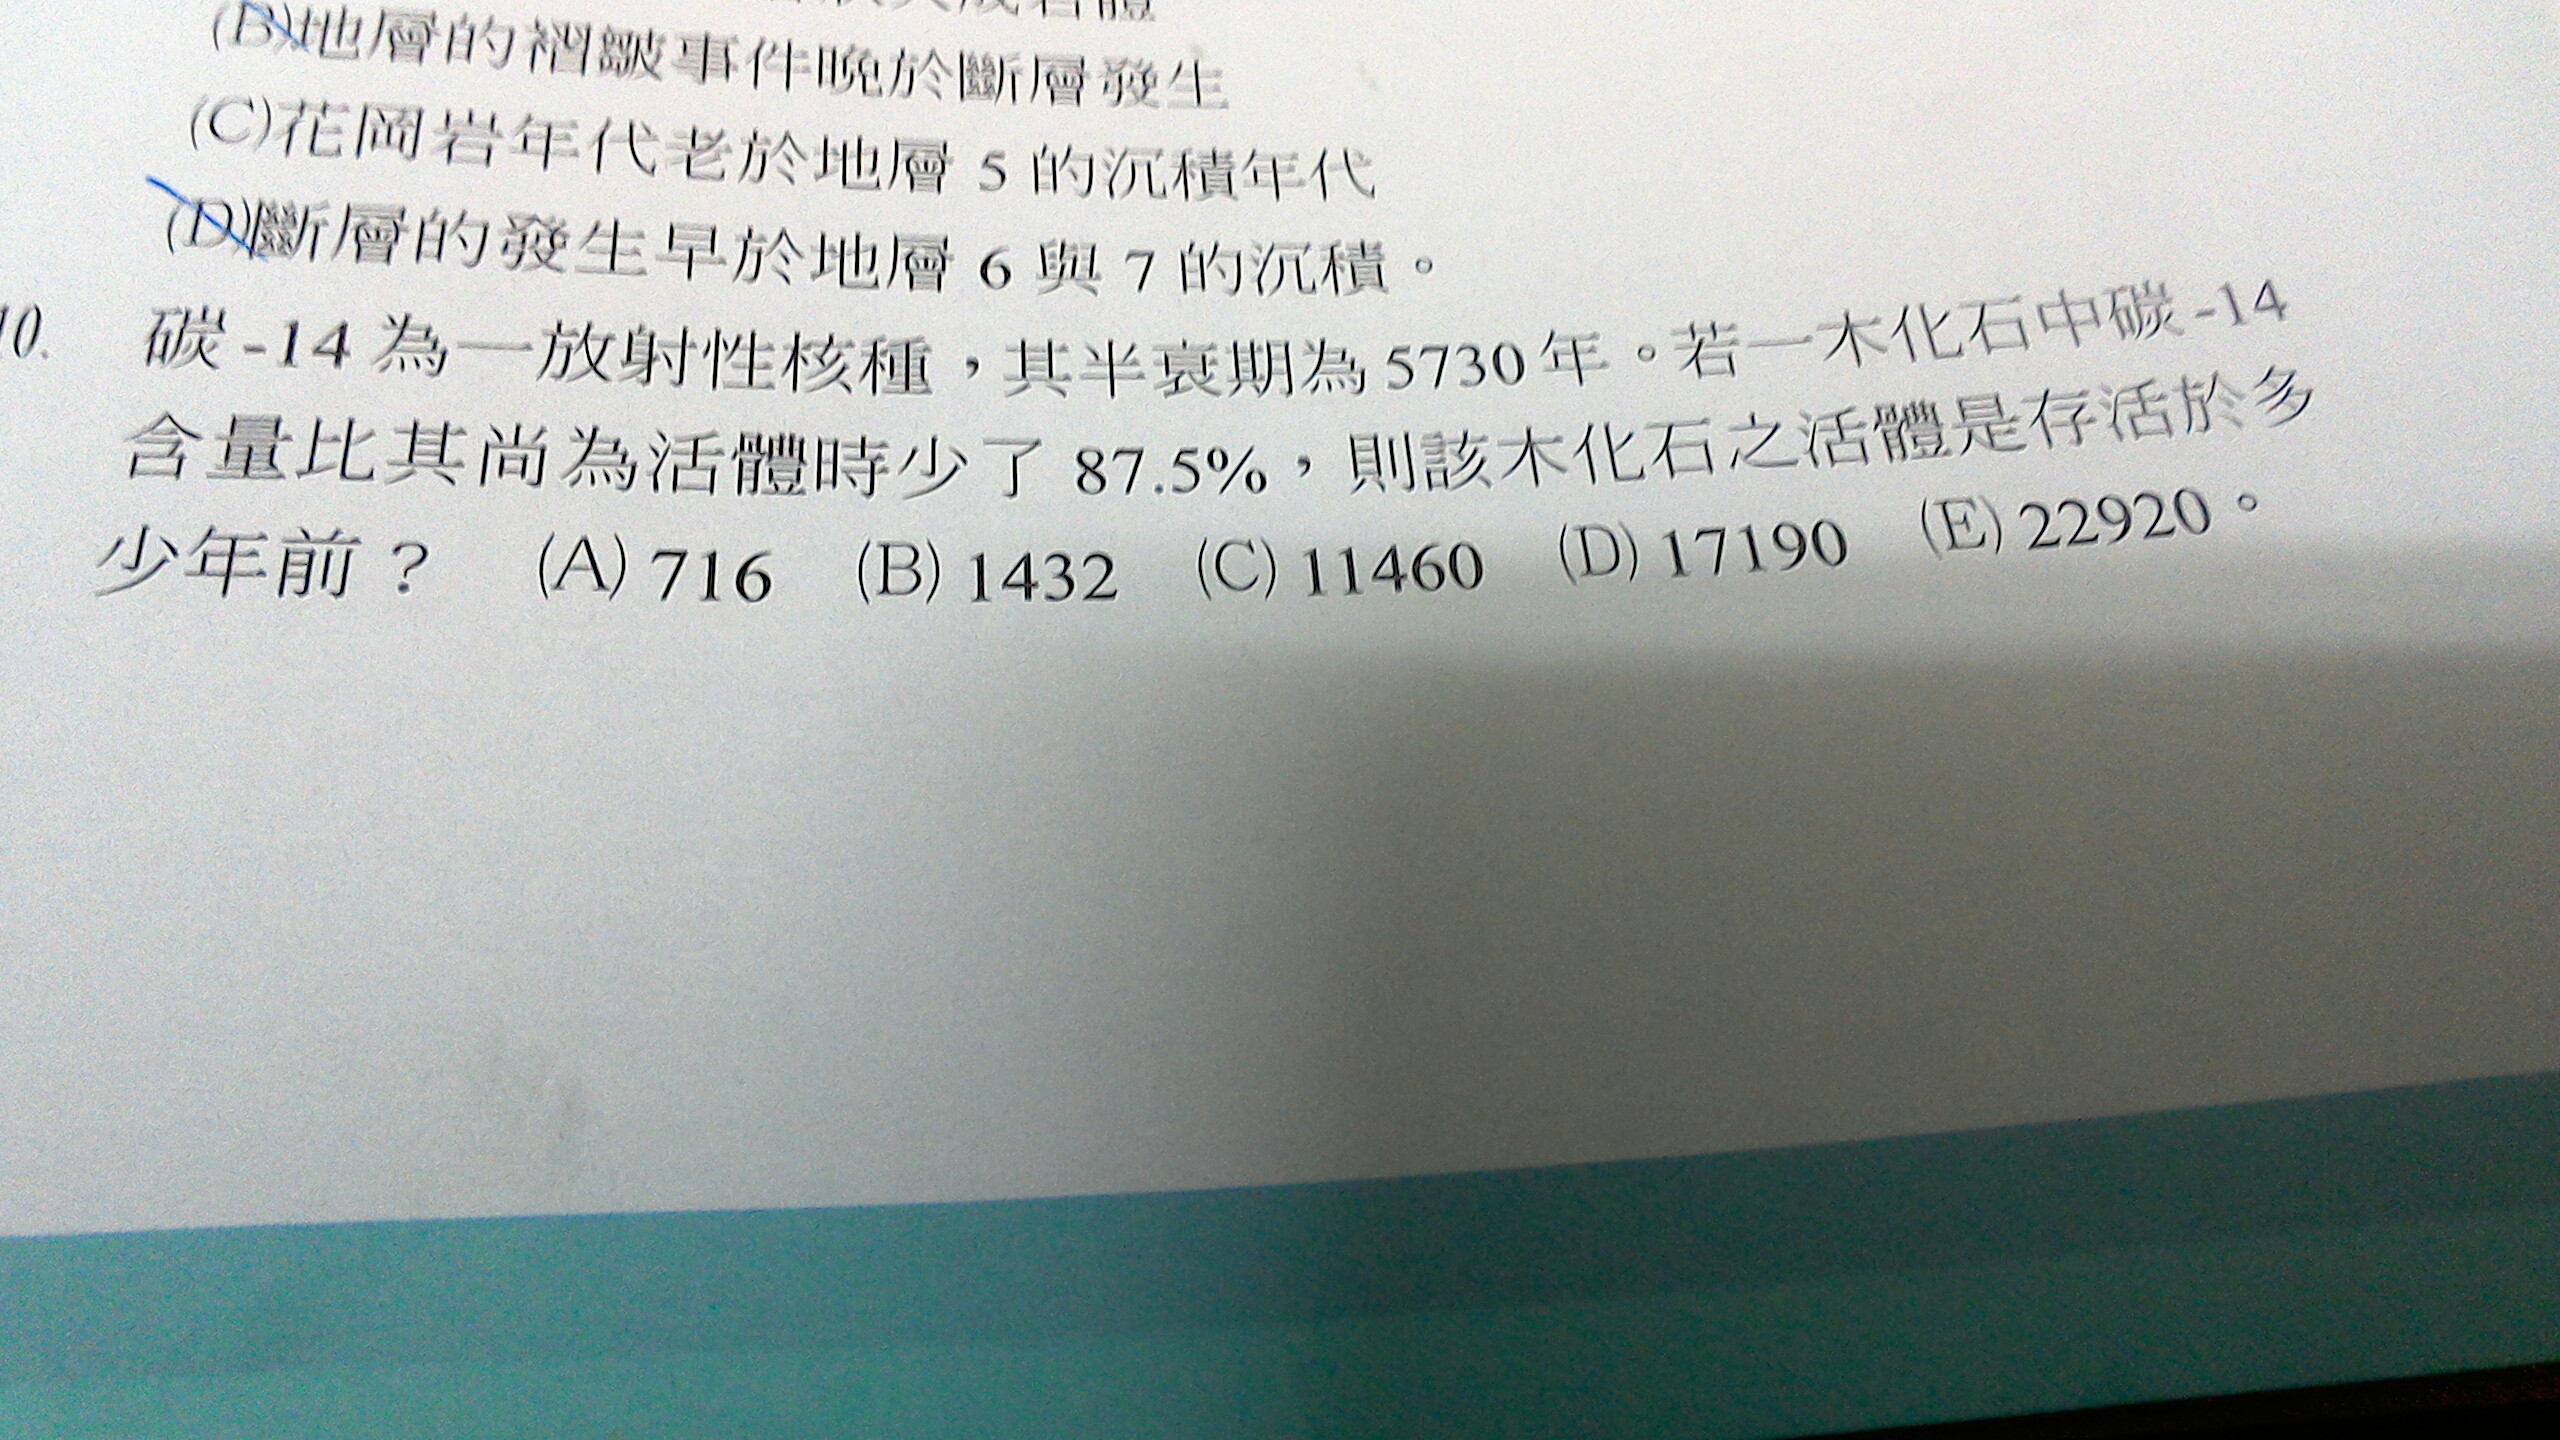 (B)地層的褶皺事件晚於斷層發生
(C)花岡岩年代老於地層 5 的沉積年代
(D)斷層的發生早於地層 6 與 7 的沉積。
10. 碳-14 為一放射性核種，其半衰期為 5730 年。若一木化石中碳-14
含量比其尚為活體時少了 87.5%，則該木化石之活體是存活於多
少年前？ (A) 716 (B) 1432 (C) 11460 (D) 17190 (E) 22920。